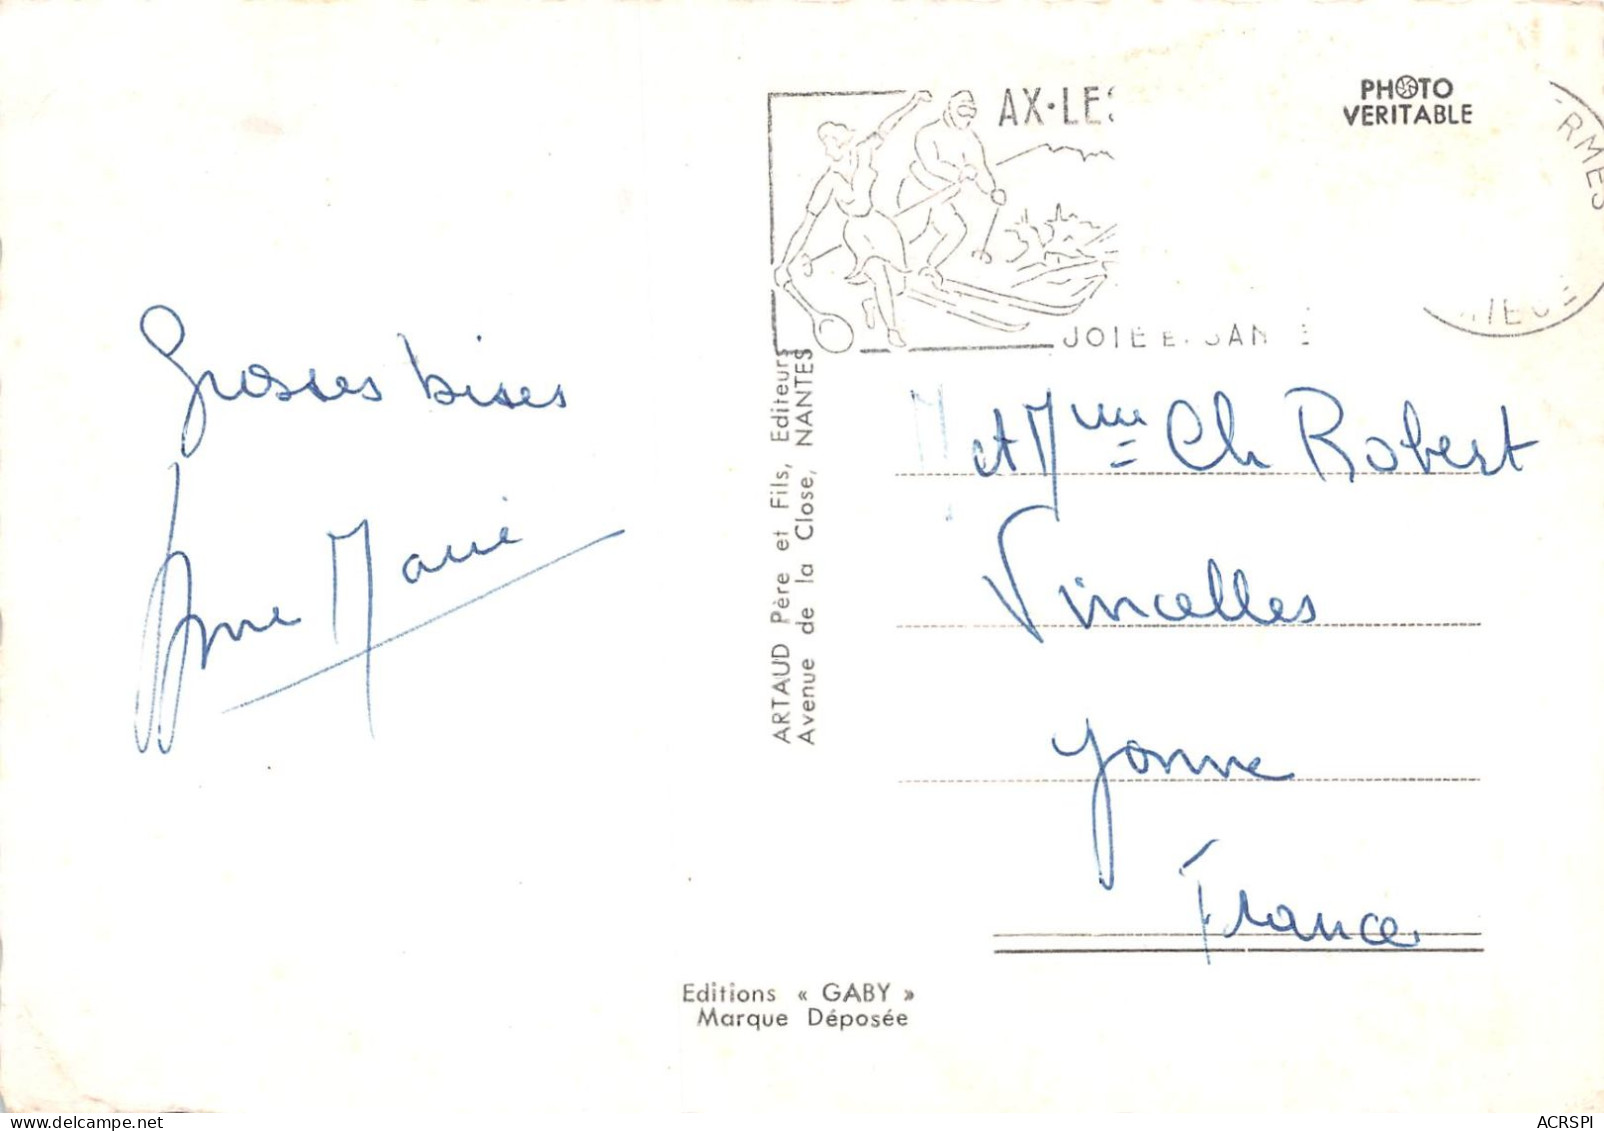 Grosses bises
Anne Marie
ARTAUD Père et Fils, Editeurs
Avenue de la Close, NANTES
Editions « GABY »
Marque Déposée
AX•LES
JOIE E. SANTE
PHOTO
VERITABLE
RMES
IEGE
M et Mme Ch Robert
Vincelles
Yonne
France
ACRSPI